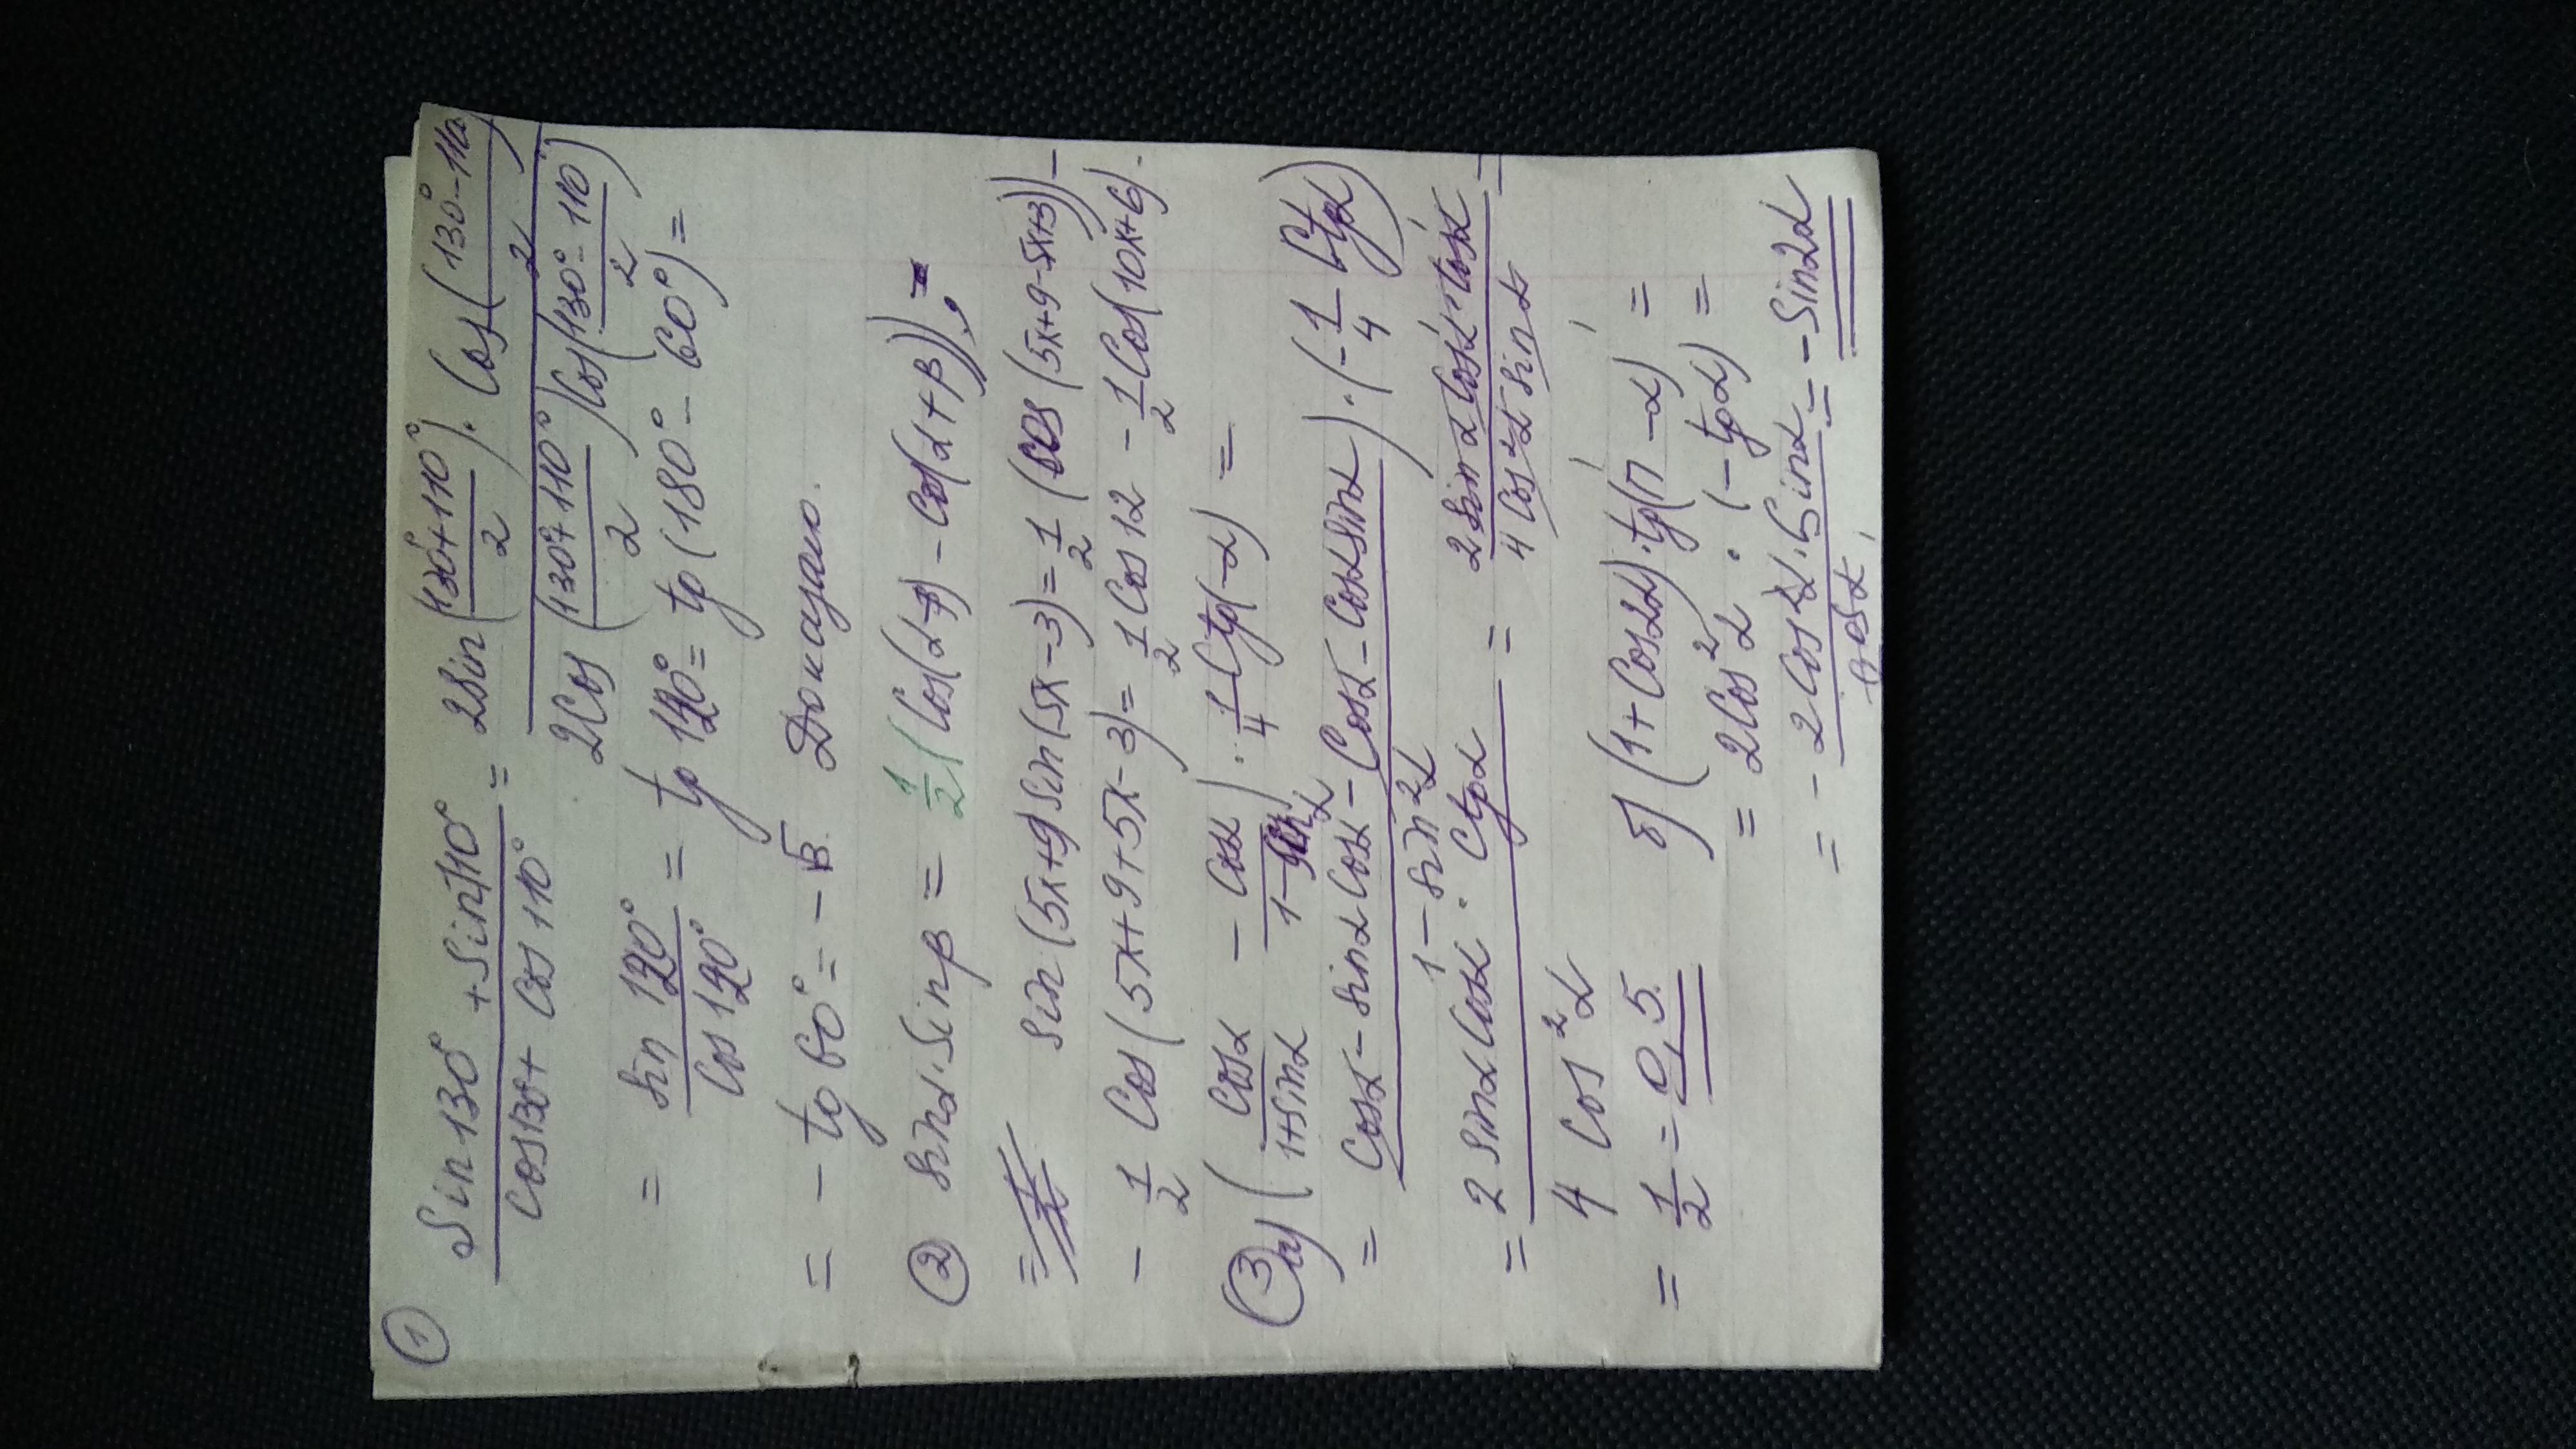 ①
Sin 130° + Sin 110° / Cos 130° + Cos 110° = 2 Sin (130°+110° / 2) · Cos (130° - 110° / 2) / 2 Cos (130°+110° / 2) Cos (130° - 110° / 2)
= Sin 120° / Cos 120° = tg 120° = tg (180° - 60°) =
= - tg 60° = - √3. Доказано.
② Sin α · Sin β = 1/2 (Cos(α-β) - Cos(α+β));
Sin (5x+9) Sin (5x-3) = 1/2 (Cos (5x+9-5x+3)) -
- 1/2 Cos (5x+9+5x-3) = 1/2 Cos 12 - 1/2 Cos (10x+6).
③ а) (Cos α / 1+Sin α - Cos α / 1-Sin α) · 1/4 Ctg(-α) =
= Cos α - Sin α Cos α - Cos α - Cos α Sin α / 1 - Sin² α ) · (- 1/4 Ctg α)
= 2 Sin α Cos α · Ctg α / 4 Cos² α = 2 Sin α Cos α · Cos α / 4 Cos² α Sin α =
= 1/2 = 0,5.
б) (1 + Cos 2α) · tg (π - α) =
= 2 Cos² α · (- tg α) =
= - 2 Cos² α · Sin α / Cos α = - Sin 2α